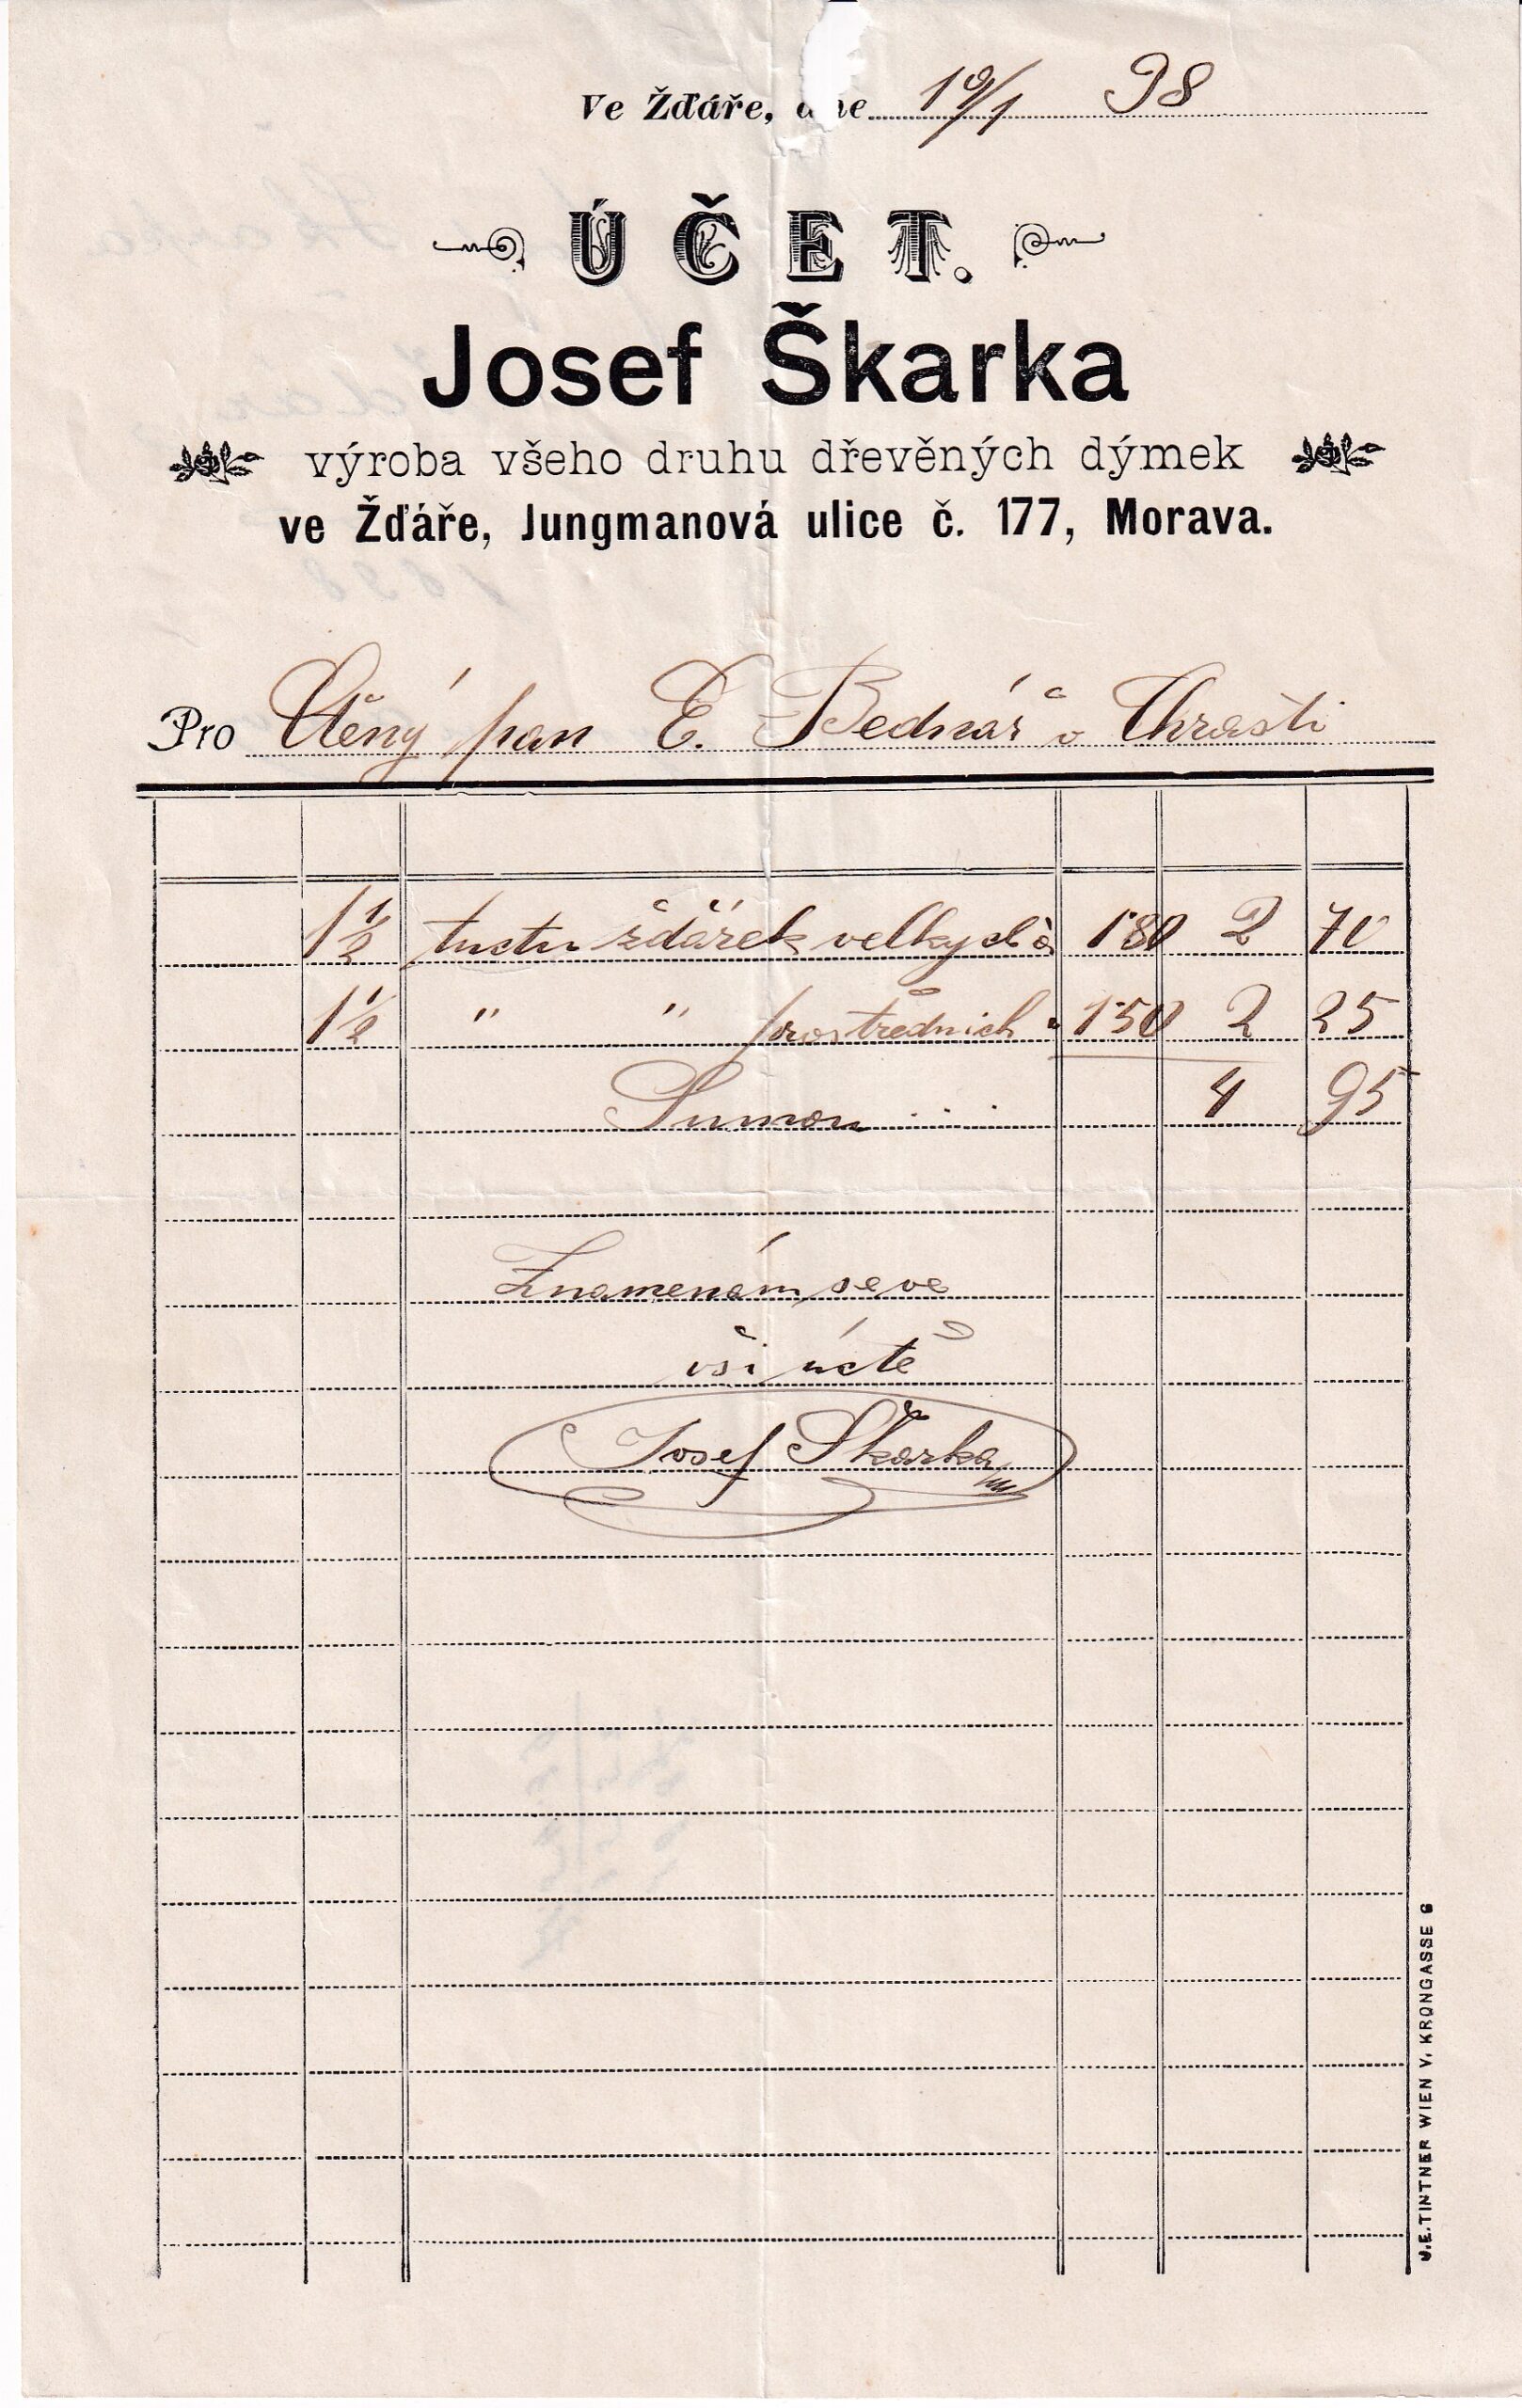 Ve Žďáře, dne 19/1 98
ÚČET.
Josef Škarka
výroba všeho druhu dřevěných dýmek
ve Žďáře, Jungmanová ulice č. 177, Morava.
Pro Ctěný pan E. Bednář v Chrasti
1 1/2 tuctu žďárek velkych à 1·80 2 70
1 1/2 " " prostřednich " 1·50 2 25
Sumou .... 4 95
Znamenám se ve
vší úctě
Josef Škarka
J.E.TINTNER WIEN V. KRONGASSE 6